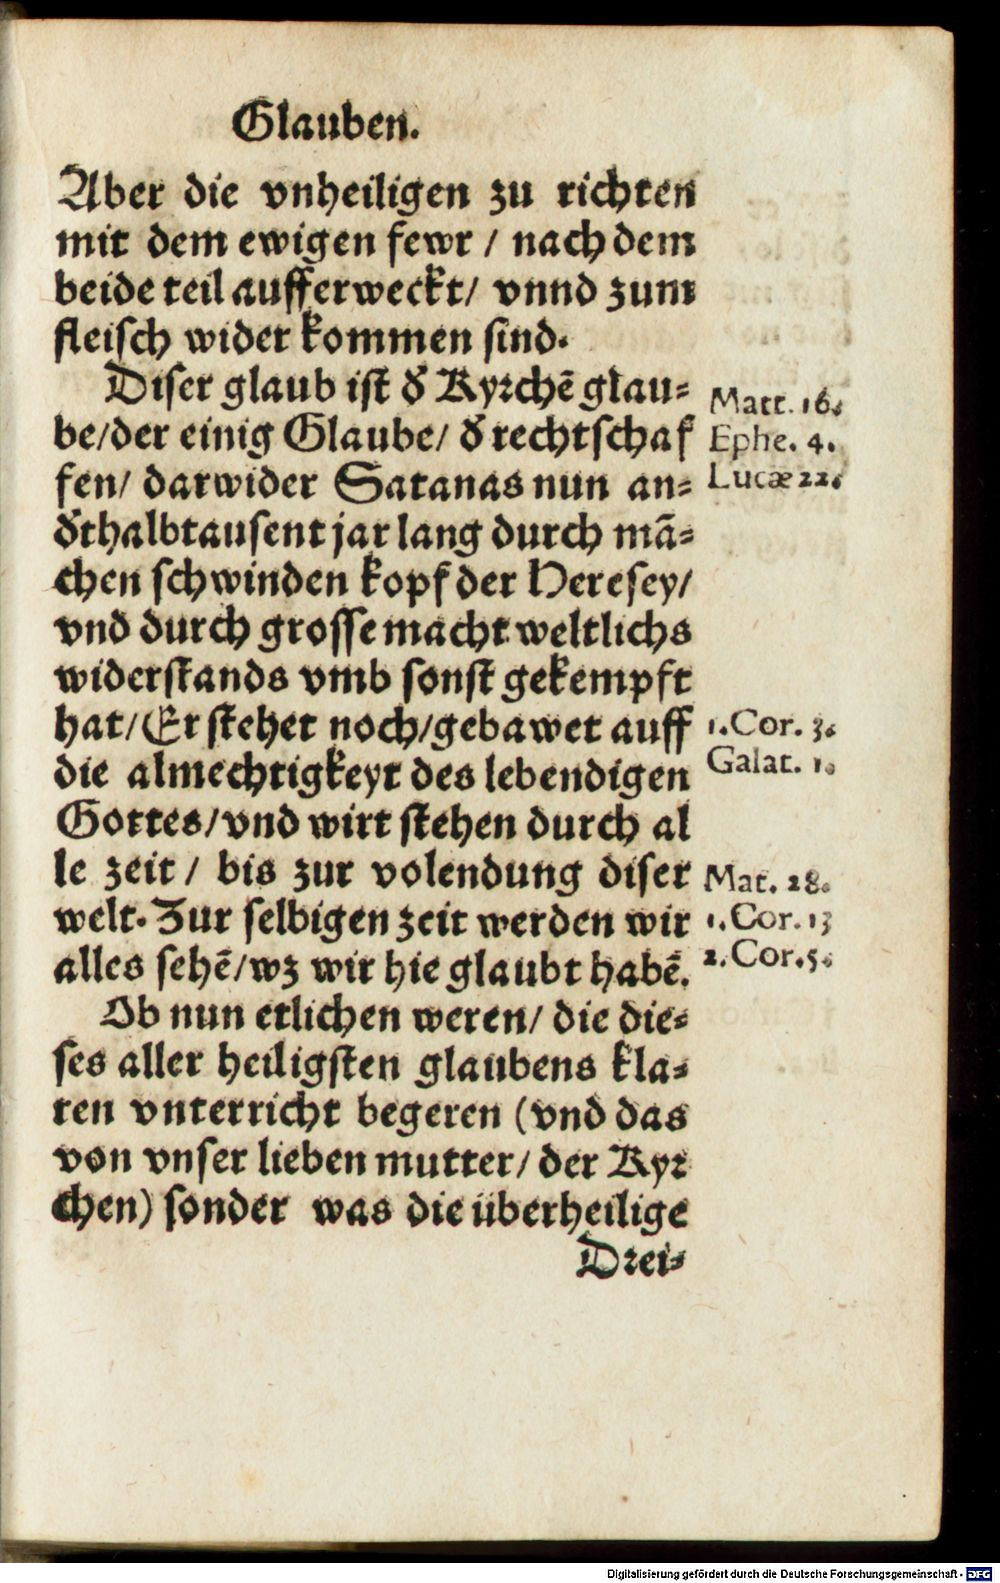 Glauben.
Aber die vnheiligen zu richten
mit dem ewigen fewr / nach dem
beide teil aufferweckt/ vnnd zum
fleisch wider kommen sind.
Diser glaub ist d̕ Kyrchē glau-
be/der einig Glaube/ d̕ rechtschaf
fen/ darwider Satanas nun an-
d̕thalbtausent jar lang durch mā-
chen schwinden kopf der Heresey/
vnd durch grosse macht weltlichs
widerstands vmb sonst gekempft
hat/Er stehet noch/gebawet auff
die almechtigkeyt des lebendigen
Gottes/vnd wirt stehen durch al
le zeit / bis zur volendung diser
welt. Zur selbigen zeit werden wir
alles sehē/wz wir hie glaubt habē.
Ob nun etlichen weren/ die die-
ses aller heiligsten glaubens kla-
ren vnterricht begeren (vnd das
von vnser lieben mutter/ der Kyr
chen) sonder was die überheilige
Drei-
Matt. 16.
Ephe. 4.
Lucæ 22.
1.Cor. 3.
Galat. 1.
Mat. 28.
1.Cor. 13
2.Cor.5.
Digitalisierung gefördert durch die Deutsche Forschungsgemeinschaft - DFG